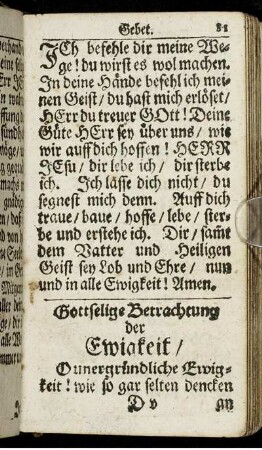 Gebet. 81
ICh befehle dir meine We-
ge! du wirst es wol machen.
In deine Hände befehl ich mei-
nen Geist/ du hast mich erlöset/
HErr du treuer GOtt! Deine
Güte HErr sey über uns/ wie
wir auff dich hoffen! HERR
JEsu/ dir lebe ich/ dir sterbe
ich. Ich lässe dich nicht/ du
segnest mich denn. Auff dich
traue/ baue/ hoffe/ lebe/ ster-
be und erstehe ich. Dir/ samt
dem Vatter und Heiligen
Geist sey Lob und Ehre/ nun
und in alle Ewigkeit! Amen.
Gottselige Betrachtung
der
Ewigkeit/
O unergründliche Ewig-
keit! wie so gar selten dencken
D v an